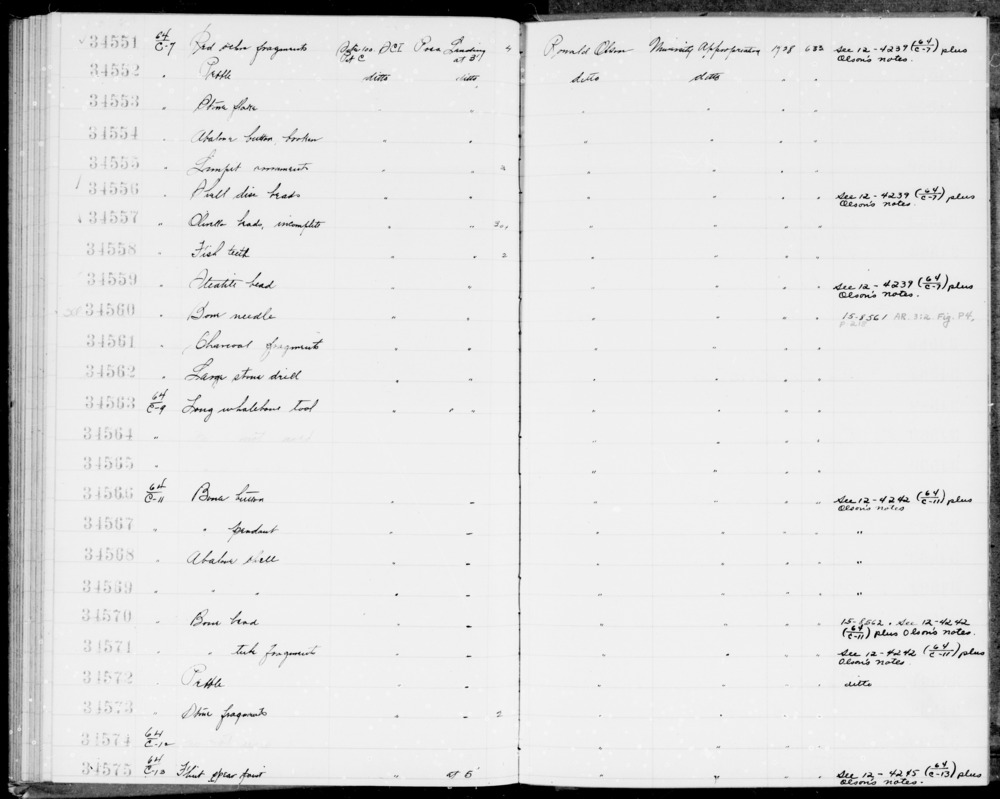 34551 64/C-7 Red ochre fragments Posa Landing at 3' 4 Ronald Olson University Appropriation 1928 683 See 12-4239 (64/C-7) plus Olson's notes.
34552 . Pebble ditto ditto ditto ditto . .
34553 . Stone flake
34554 . Abalone button, broken
34555 . Limpet ornaments 3
34556 . Shell disc beads See 12-4239 (64/C-7) plus Olson's notes.
34557 " Olivella beads, incomplete
34558 . Fish teeth 2
34559 . Steatite bead See 12-4239 (64/C-7) plus Olson's notes.
34560 . Bone needle 15-8561 AR. 312 Fig. P4, P. 215
34561 . Charcoal fragments
34562 . Large stone drill
34563 64/C-9 Long whalebone tool
34564 "
34565 .
34566 64/C-11 Bone button See 12-4242 (64/C-11) plus Olson's notes
34567 " " pendant "
34568 . Abalone shell "
34569 . " " "
34570 . Bone bead 15-8562. See 12-4242 (64/C-11) plus Olson's notes.
34571 . " tube fragments See 12-4242 (64/C-11) plus Olson's notes.
34572 . Pebble ditto
34573 . Stone fragments 2
34574 64/C-12
34575 64/C-13 Flint spear point " at 5' See 12-4245 (64/C-13) plus Olson's notes.